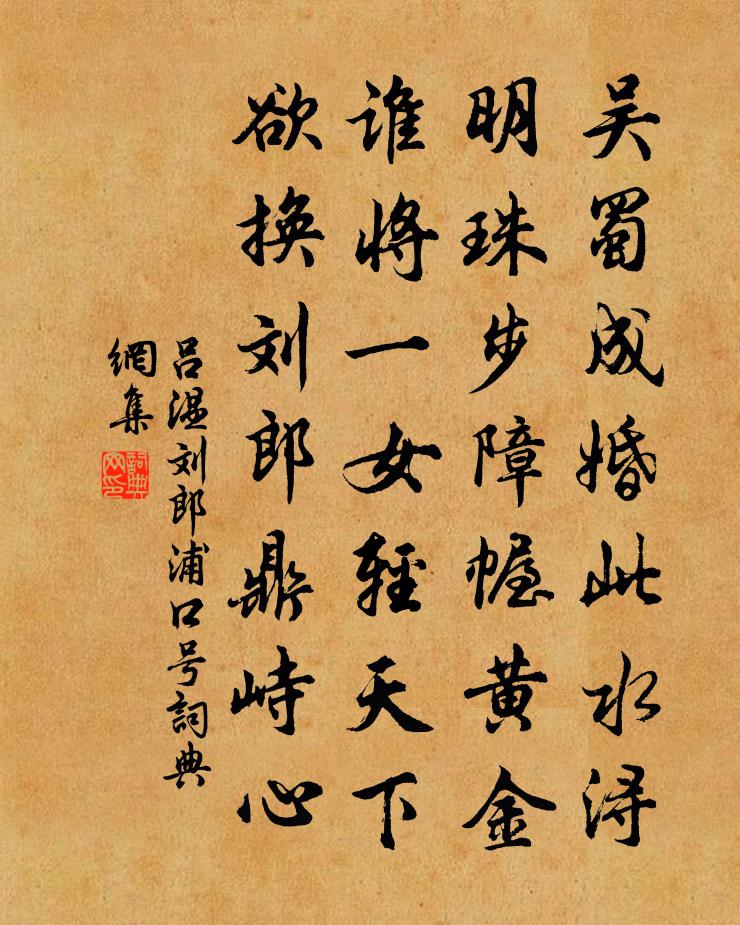 吴蜀成婚此水浔
明珠步障幄黄金
谁将一女輕天下
欲换刘郎鼎峙心
吕温刘郎浦口号詞典
網集
詞典网印